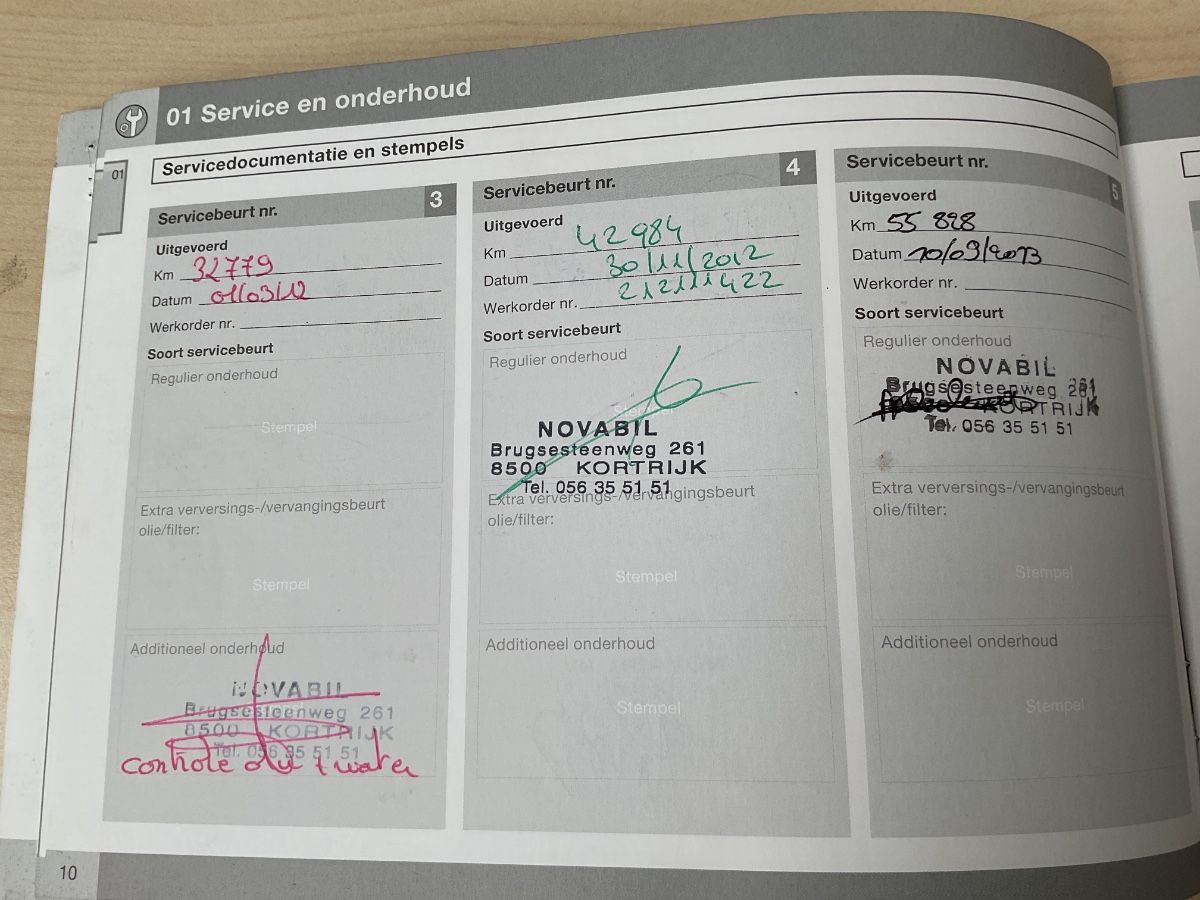 01 Service en onderhoud
01
Servicedocumentatie en stempels
Servicebeurt nr. 3
Uitgevoerd
Km 32779
Datum 01/03/12
Werkorder nr.
Soort servicebeurt
Regulier onderhoud
Stempel
Extra verversings-/vervangingsbeurt
olie/filter:
Stempel
Additioneel onderhoud
NOVABIL
Brugsesteenweg 261
8500 KORTRIJK
Tel. 056 35 51 51
controle water
Servicebeurt nr. 4
Uitgevoerd
Km 42984
Datum 30/11/2012
Werkorder nr. 21211422
Soort servicebeurt
Regulier onderhoud
Stempel
NOVABIL
Brugsesteenweg 261
8500 KORTRIJK
Tel. 056 35 51 51
Extra verversings-/vervangingsbeurt
olie/filter:
Stempel
Additioneel onderhoud
Stempel
Servicebeurt nr. 5
Uitgevoerd
Km 55 828
Datum 10/09/2013
Werkorder nr.
Soort servicebeurt
Regulier onderhoud
NOVABIL
Brugsesteenweg 261
KORTRIJK
Tel. 056 35 51 51
Extra verversings-/vervangingsbeurt
olie/filter:
Stempel
Additioneel onderhoud
Stempel
10